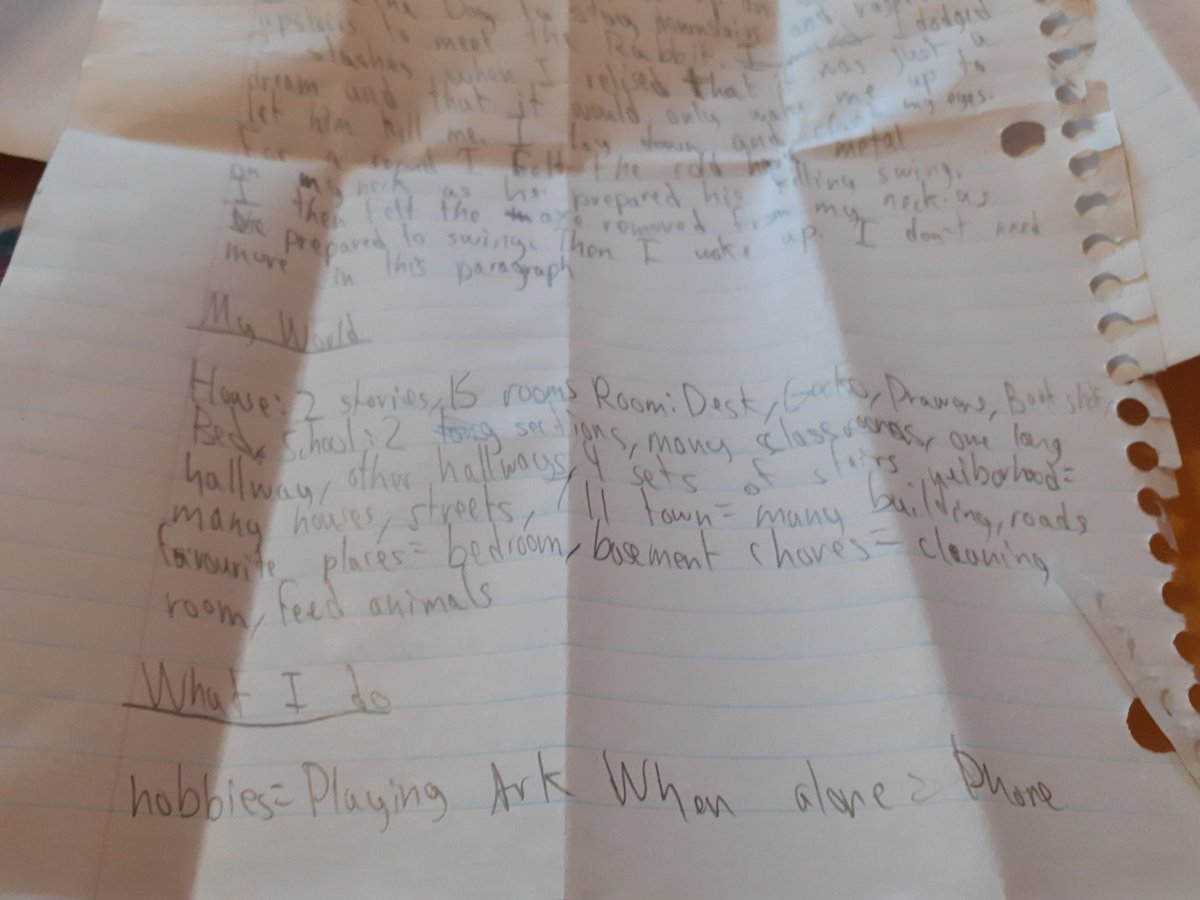 the Dog to stay
upstairs to meet the Rabbit. I dodged
slashes when I relised that I was just a
dream and that it would only wake me up to
let him kill me. I lay down and my eyes.
For a I felt the cold metal
on my neck as he prepared his killing swing.
I then felt the axe removed from my neck as
he prepared to swing. Then I woke up. I don't need
more in this paragraph
My World
House: 2 stories, 15 rooms Room: Desk, Gecko, Drawers, Book
Bed, School: 2 sections, many classrooms, one long
hallway, other hallways, 4 sets of stairs neiborhood=
many houses, streets, 711 town= many building, roads
favourite places= bedroom, basement chores= cleaning
room, feed animals
What I do
hobbies= Playing Ark When alone= Phone